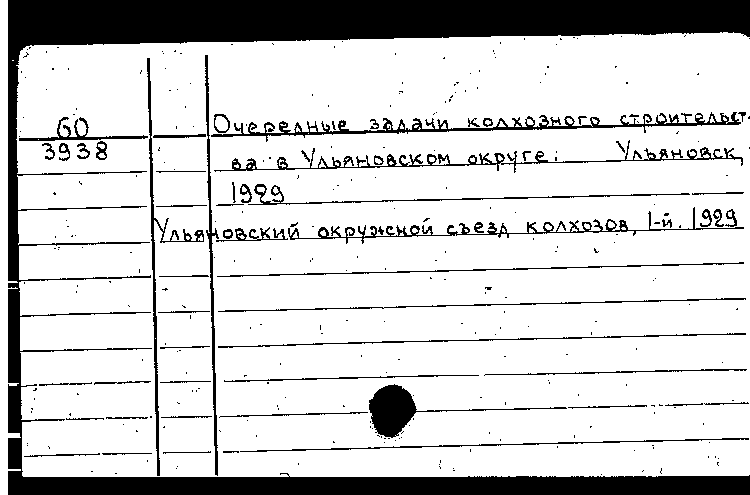 60
3938
Очередные задачи колхозного строительст-
ва в Ульяновском округе. Ульяновск,
1929
Ульяновский окружной съезд колхозов, 1-й. 1929